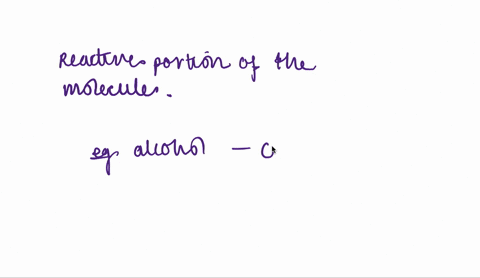 Reactive portion of the
molecules.
eg alcohol – O